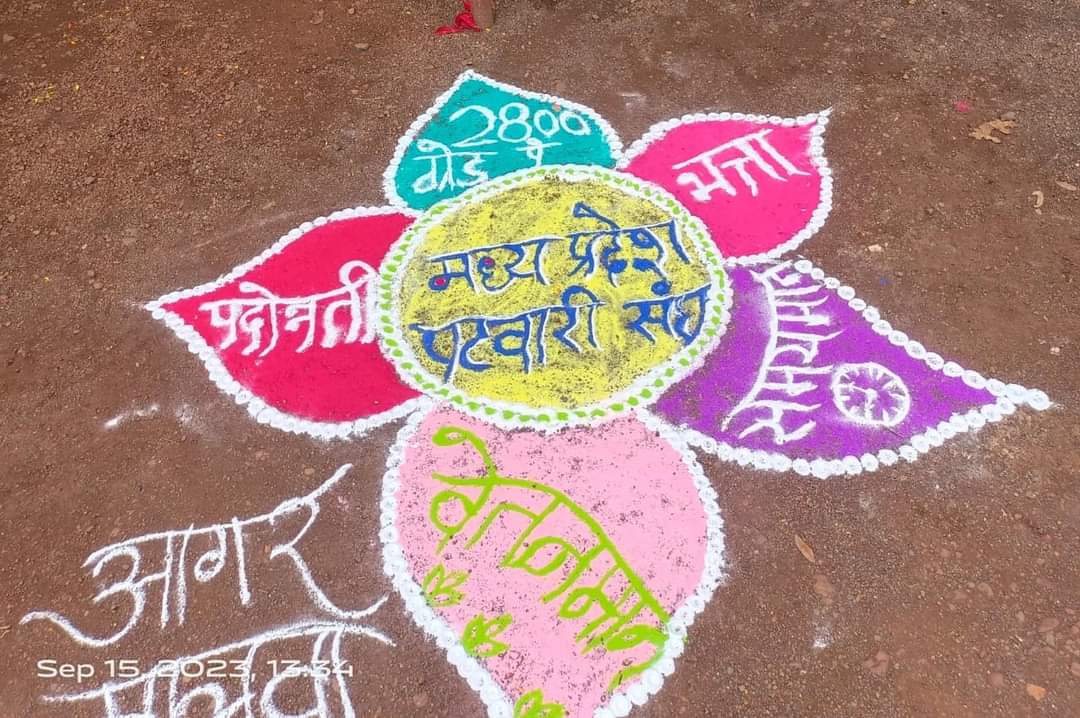 2800
ग्रेड पे
भत्ता
मध्य प्रदेश
पटवारी संघ
पदोन्नती
समयमान
वेतनमान
आगर
मालवा
Sep 15, 2023, 13:34